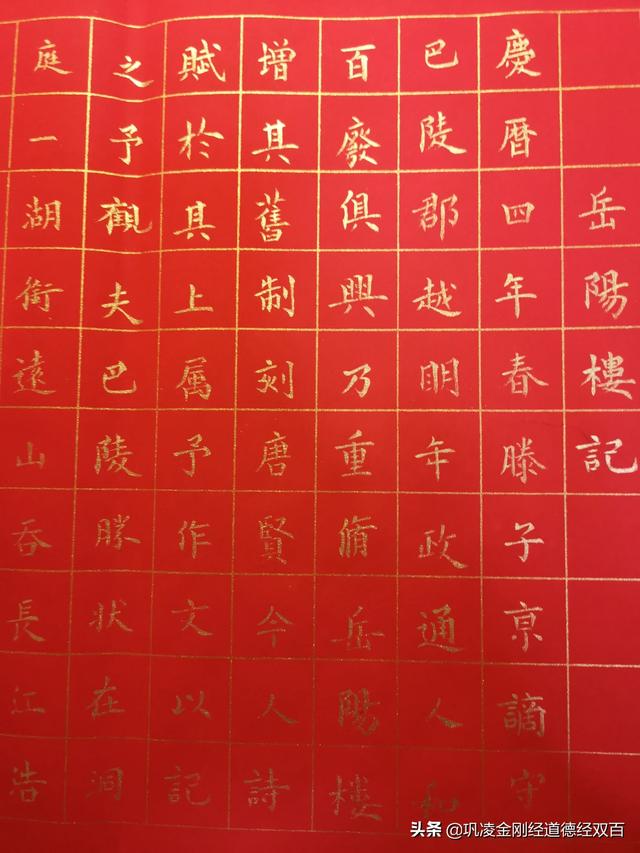 岳陽樓記
慶暦四年春滕子京謫守
巴陵郡越明年政通人和
百廢俱興乃重脩岳陽樓
增其舊制刻唐賢今人詩
賦於其上属予作文以記
之予觀夫巴陵勝狀在洞
庭一湖銜遠山吞長江浩
头条 @巩凌金刚经道德经双百